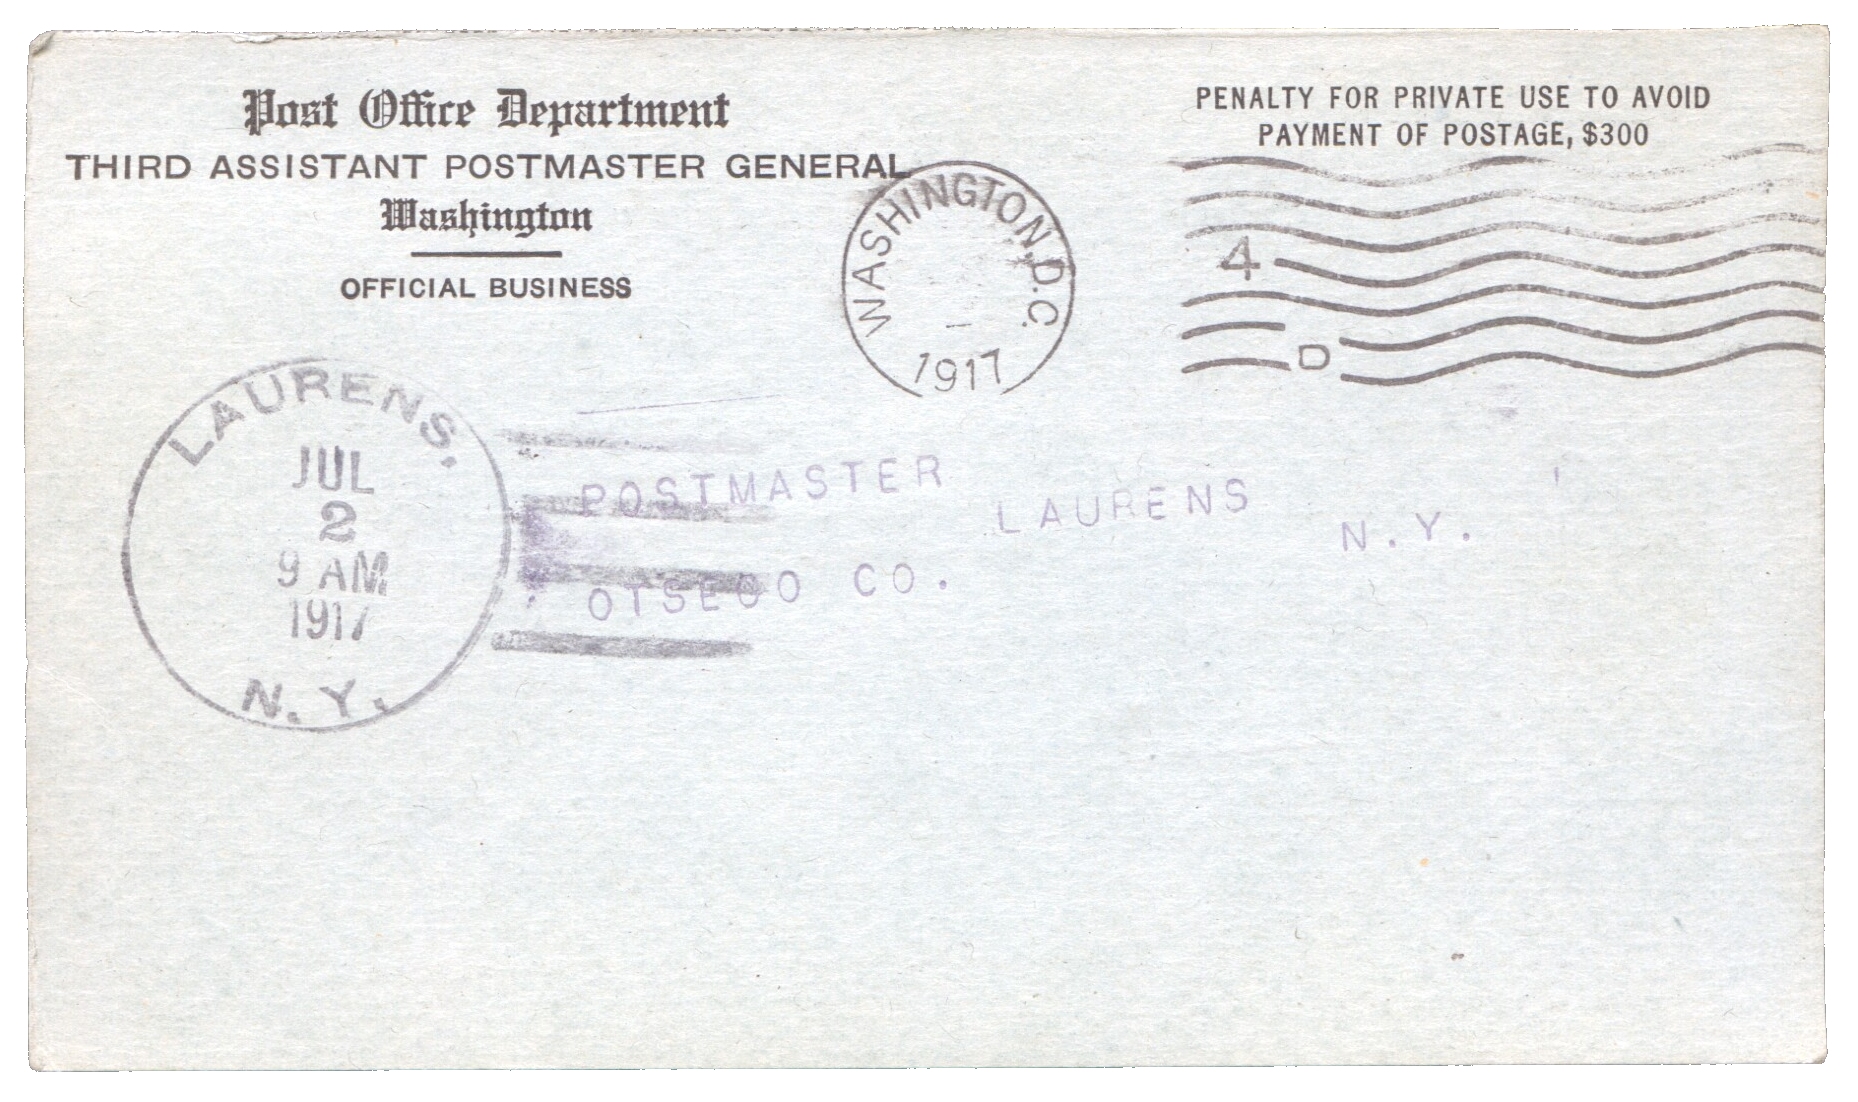 Post Office Department
THIRD ASSISTANT POSTMASTER GENERAL
Washington
OFFICIAL BUSINESS
PENALTY FOR PRIVATE USE TO AVOID
PAYMENT OF POSTAGE, $300
WASHINGTON, D.C.
1917
4
D
LAURENS.
JUL
2
9 AM
1917
N.Y.
POSTMASTER LAURENS N.Y.
OTSEGO CO.